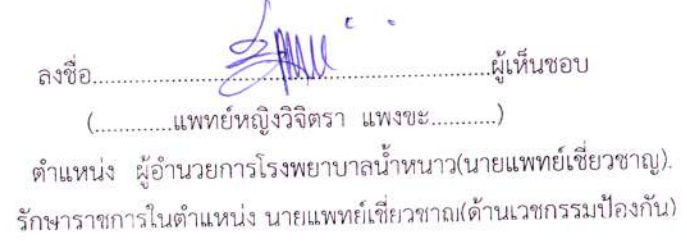 ลงชื่อ............................................................ผู้เห็นชอบ
(............แพทย์หญิงวิจิตรา แพงขะ...........)
ตำแหน่ง ผู้อำนวยการโรงพยาบาลน้ำหนาว(นายแพทย์เชี่ยวชาญ).
รักษาราชการในตำแหน่ง นายแพทย์เชี่ยวชาญ(ด้านเวชกรรมป้องกัน)